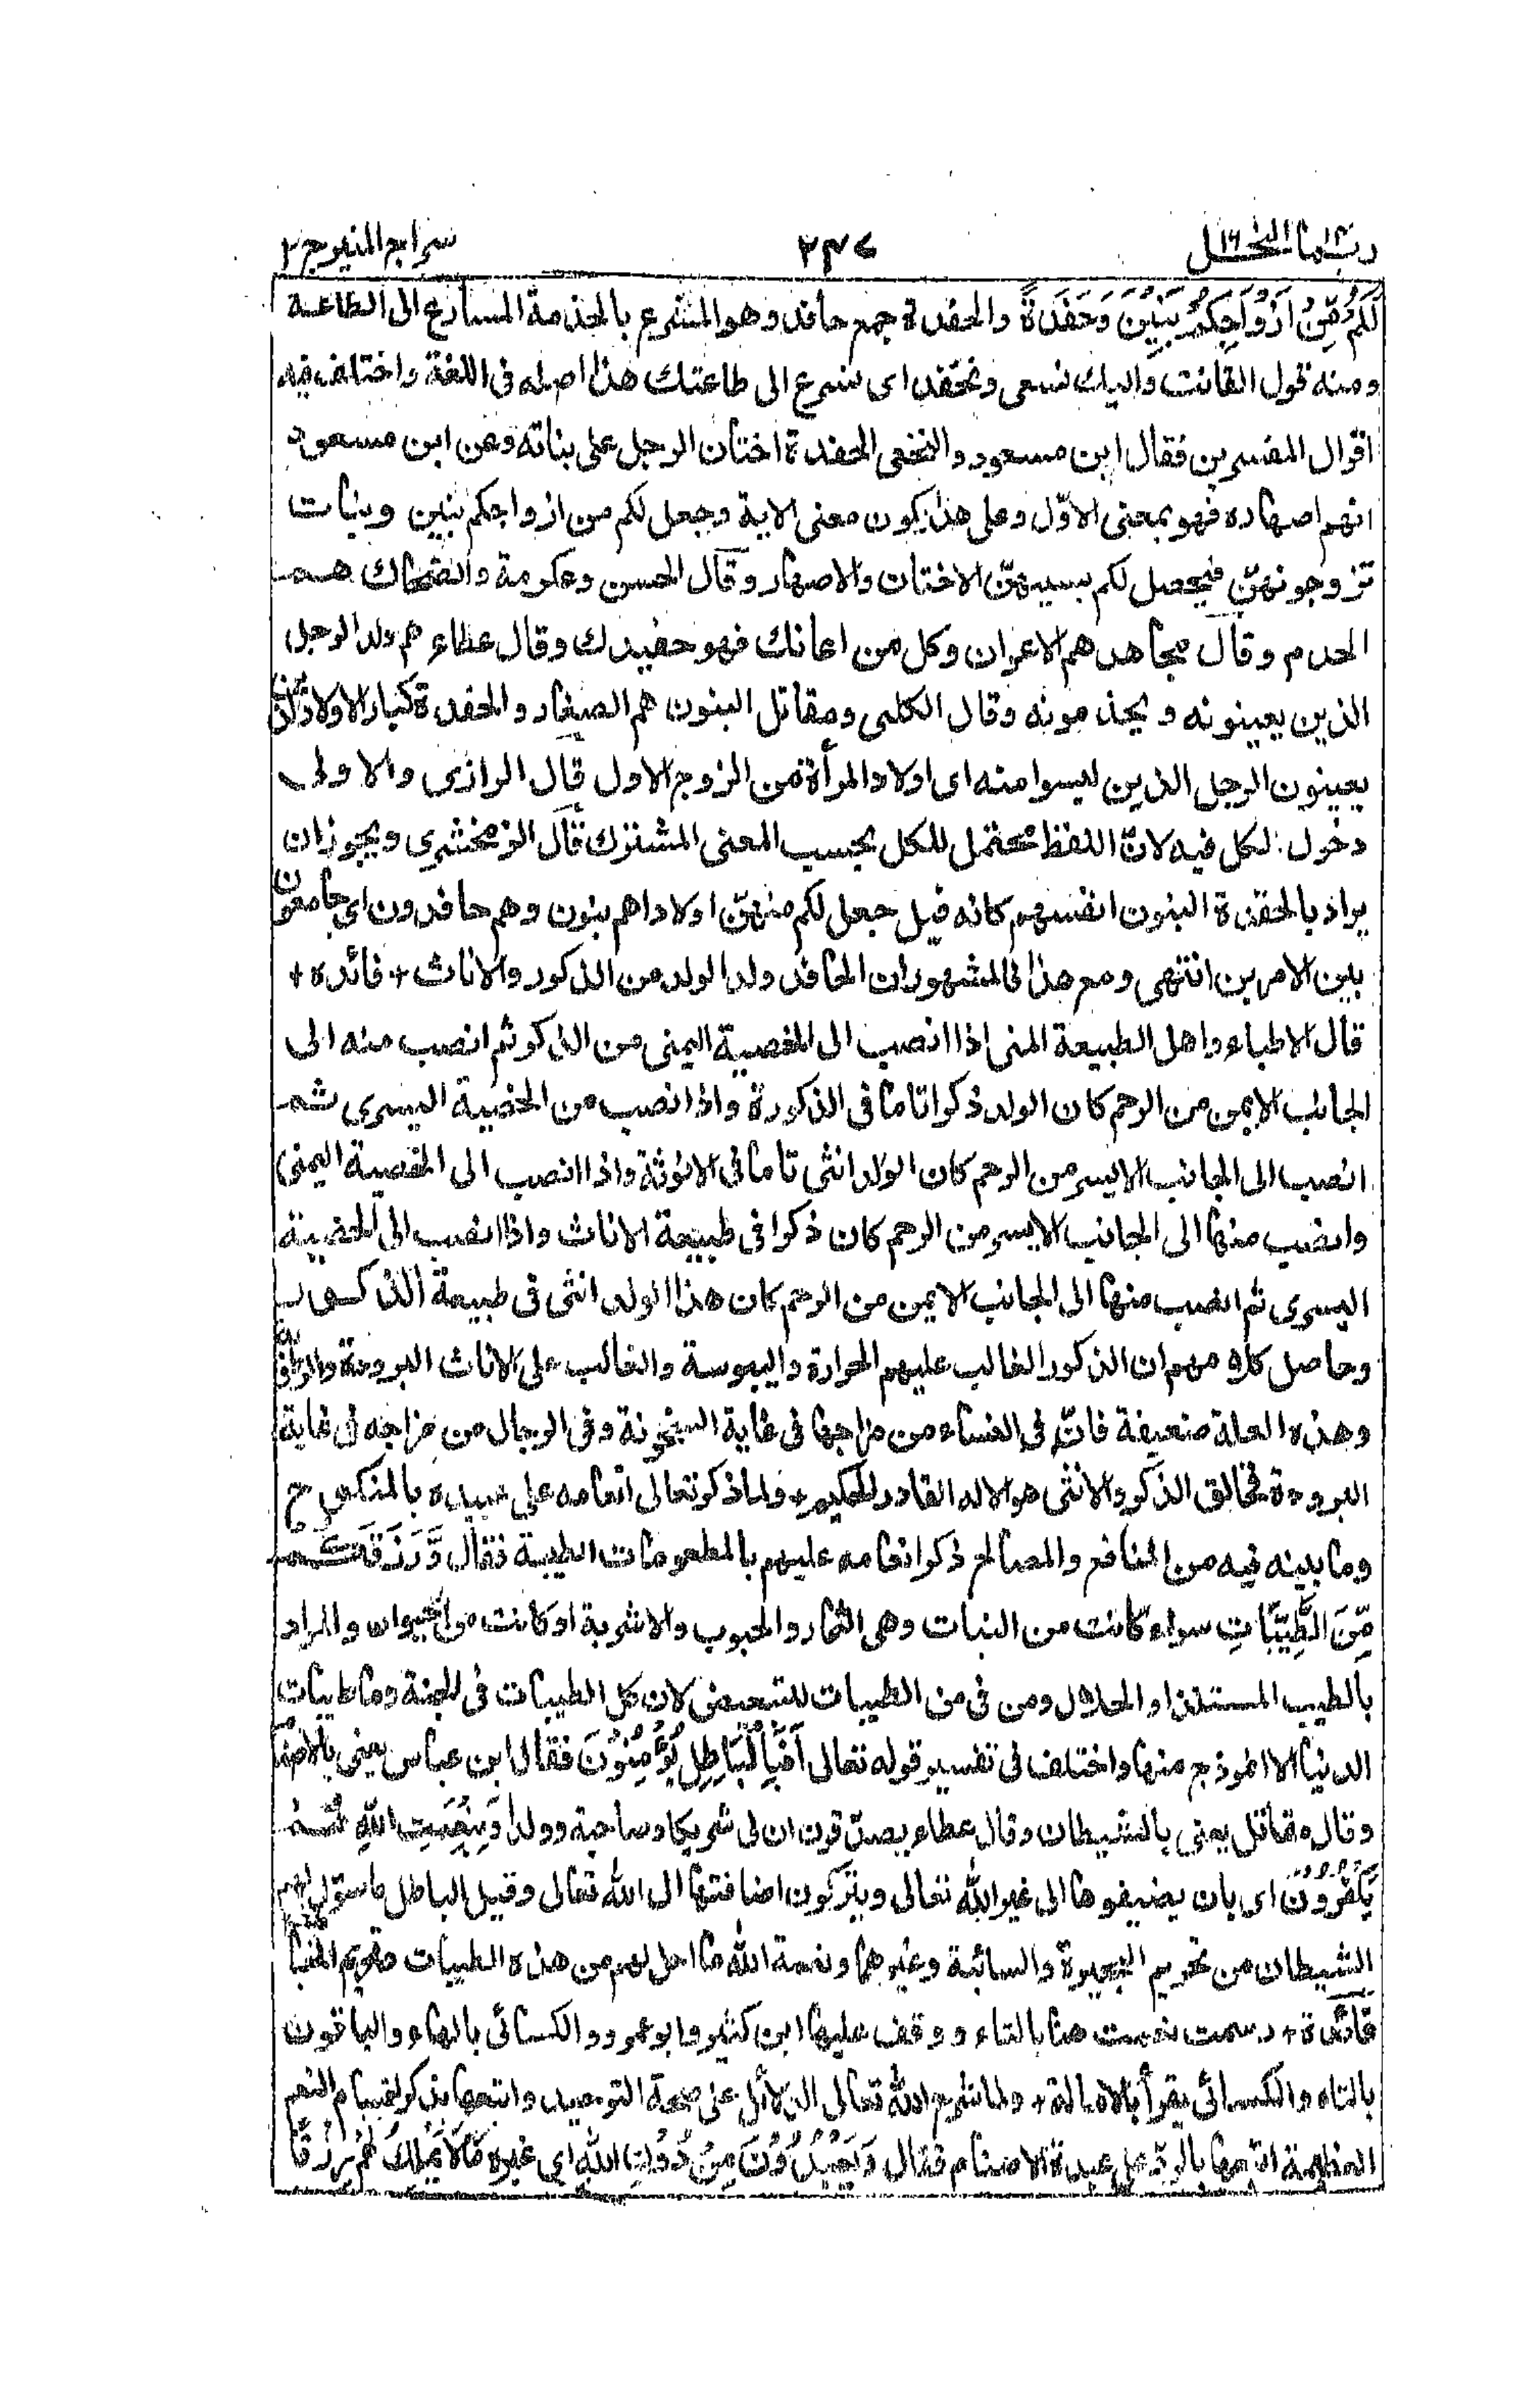 ربما ١٤ النحل ١٦
٢٣٧
سراج المنير ج ٢
لَكُمْ مِّنْ اَزْوَاجِكُمْ بَنِيْنَ وَحَفَدَةً والحفدة جمع حافد وهو المشرع بالخذمة المسارع الى الطاعة
ومنه قول القانت واليك نسعى ونحفد اى نسرع الى طاعتك هذا اصله فى اللغة واختلف فيه
اقوال المفسرين فقال ابن مسعود والنخعى الحفدة اختان الرجل على بناته وعن ابن مسعود
انهم اصهاره فهو بمعنى الاوّل وعلى هذا يكون معنى الاية وجعل لكم من ازواجكم بنين وبنات
تزوجونهنّ فيحصل لكم بسببهنّ الاختان والاصهار وقال الحسن وعكرمة والضحاك هم
الخدم وقال مجاهد هم الاعوان وكل من اعانك فهو حفيدك وقال عطاء هم ولد الرجل
الذين يعينونه ويخذمونه وقال الكلبى ومقاتل البنون هم الصغار والحفدة كبار الاولاد الذين
يعينون الرجل الذين ليسوا منه اى اولاد المرأة من الزوج الاول قال الرازى والاولى
دخول الكل فيه لانّ اللفظ محتمل للكل بحسب المعنى المشترك قال الزمخشرى ويجوز ان
يراد بالحفدة البنون انفسهم كانه قيل جعل لكم منهنّ اولادا هم بنون وهم حافدون اى جامعون
بين الامرين انتهى ومع هذا فالمشهور ان الحافد ولد الولد من الذكور والاناث + فائده +
قال الاطباء واهل الطبيعة المنى اذا انصب الى الخصية اليمنى من الذكر ثم انصب منه الى
الجانب الايمن من الرحم كان الولد ذكرا تاما فى الذكورة واذا انصب من الخصية اليسرى ثم
انصب الى الجانب الايسر من الرحم كان الولد انثى تاما فى الانوثة واذا انصب الى الخصية اليمنى
وانصب منها الى الجانب الايسر من الرحم كان ذكرا فى طبيعة الاناث واذا انصب الى الخصية
اليسرى ثم انصب منها الى الجانب الايمن من الرحم كان هذا الولد انثى فى طبيعة الذكور
وحاصل كلامهم ان الذكور الغالب عليهم الحرارة واليبوسة والغالب على الاناث البرودة والرطوبة
وهذه العلة ضعيفة فانّ فى النساء من مزاجها فى غاية السخونة وفى الرجال من مزاجه فى غاية
البرودة فخالق الذكر والانثى هو الاله القادر الحكيم + ولما ذكر تعالى انعامه على عبيده بالمنكوح
وما بينه فيه من المنافع والمصالح ذكر انعامه عليهم بالمطعومات الطيبة فقال وَّرَزَقَكُمْ
مِّنَ الطَّيِّبَاتِ سواء كانت من النبات وهى الثمار والحبوب والاشربة او كانت من الحيوان والمراد
بالطيب المستلذ او الحلال ومن فى من الطيبات للتبعيض لان كل الطيبات فى الجنة وما طيبات
الدنيا الا انموذج منها واختلف فى تفسير قوله تعالى اَفَبِالْبَاطِلِ يُؤْمِنُوْنَ فقال ابن عباس يعنى بالاصنام
وقال مقاتل يعنى بالشيطان وقال عطاء يصدّقون ان لى شريكا وصاحبة وولدا وَبِنِعْمَتِ اللّٰهِ هُمْ
يَكْفُرُوْنَ اى بان يضيفوها الى غير الله تعالى ويتركون اضافتها الى الله تعالى وقيل الباطل ما سوّل لهم
الشيطان من تحريم البحيرة والسائبة وغيرهما ونعمة الله ما احل لهم من هذه الطيبات وتحريم الخبائث
فائدة + رسمت نعمت هنا بالتاء ووقف عليها ابن كثير وابو عمرو والكسائى بالهاء والباقون
بالتاء والكسائى يقرأ بالامالة + ولما شرح الله تعالى الدلائل على صحة التوحيد واتبعها بذكر اقسام النعم
العظيمة اتبعها بالردّ على عبدة الاصنام فقال وَيَعْبُدُوْنَ مِنْ دُوْنِ اللّٰهِ اى غيره مَا لَا يَمْلِكُ لَهُمْ رِزْقًا